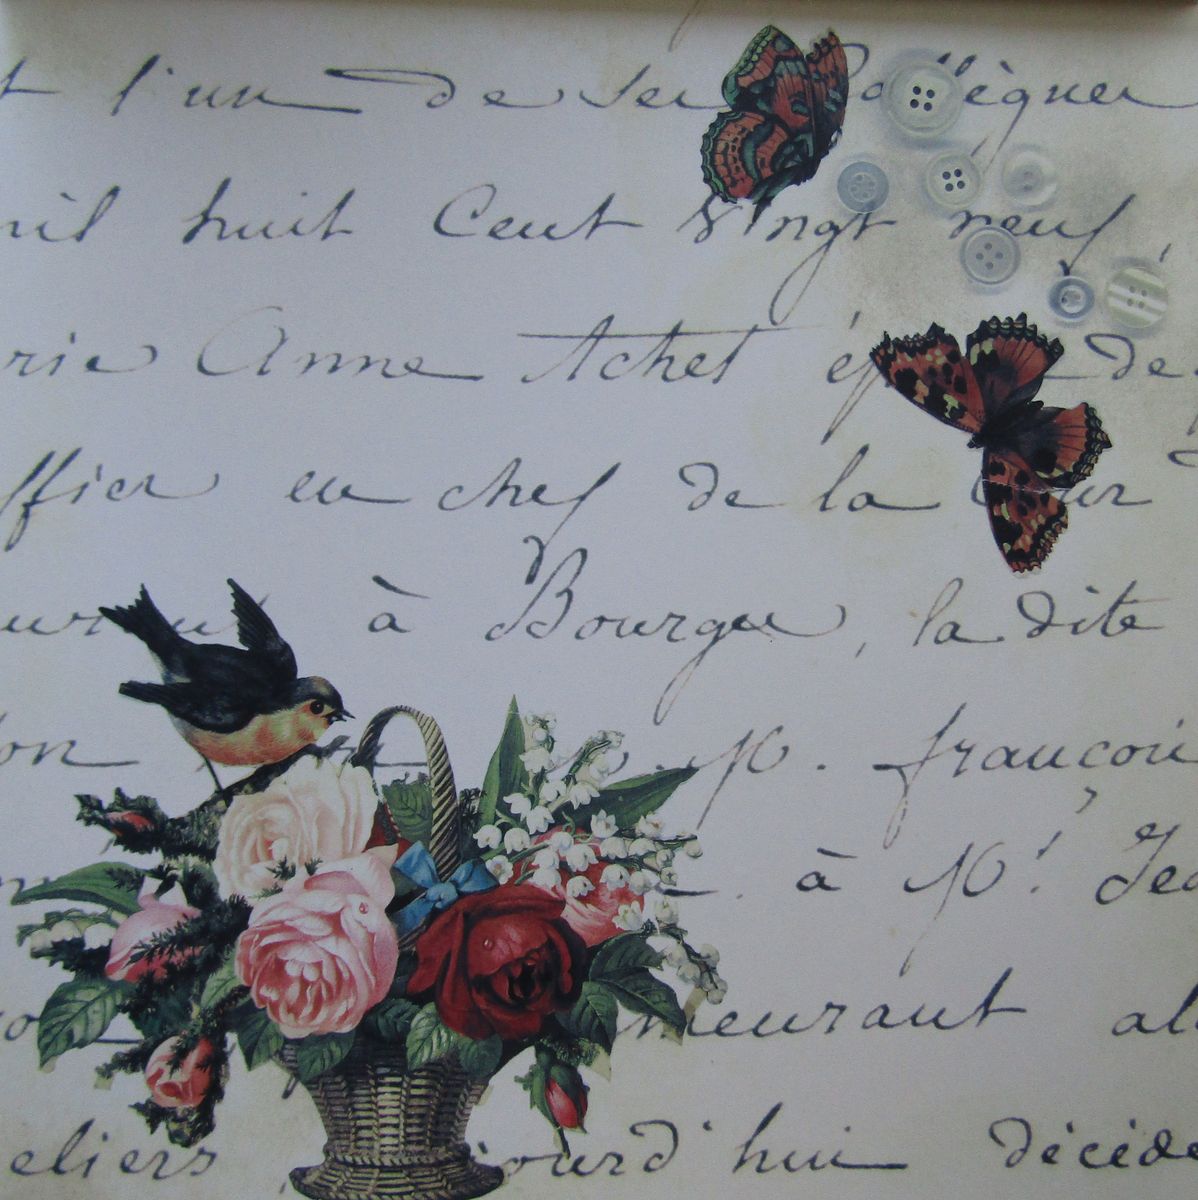 t l'un de ses Collègues
ril huit Cent vingt neuf,
rie Anne Achet ép de
ffier en chef de la Cour
à Bourges, la dite
on M. françois
à M! Jea
meurant al
eliers jourd'hui décédé